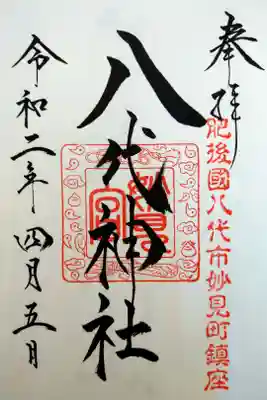 奉拝
肥後國八代市妙見町鎮座
八代神社
妙見宮
令和二年四月五日